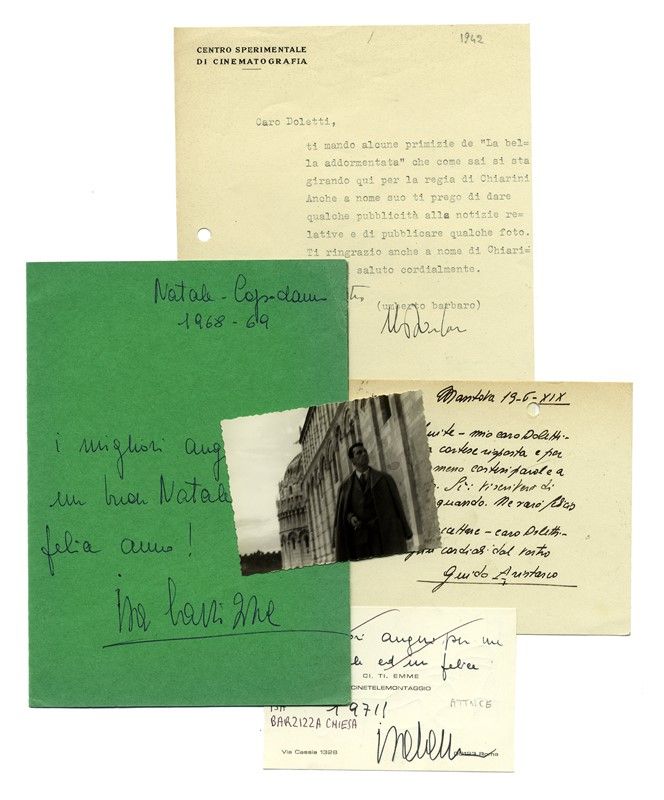 CENTRO SPERIMENTALE
DI CINEMATOGRAFIA
1942
Caro Doletti,
ti mando alcune primizie de "La bel=
la addormentata" che come sai si sta
girando qui per la regia di Chiarini
Anche a nome suo ti prego di dare
qualche pubblicità alla notizie re=
lative e di pubblicare qualche foto.
Ti ringrazio anche a nome di Chiari=
saluto cordialmente.
(umberto barbaro)
Natale - Capodanno
1968 - 69
i migliori
un buon Natale
felice anno!
Isa Barzizza
Mantova 19-6-XIX
mio caro Doletti-
cortese risposta e per
parole a
quando.
caro Doletti-
cordiali dal vostro
Guido Aristarco
auguri per un
ed un felice
CI. TI. EMME
CINETELEMONTAGGIO
1971
ATTRICE
BARZIZZA CHIESA
Via Cassia 1328
Roma